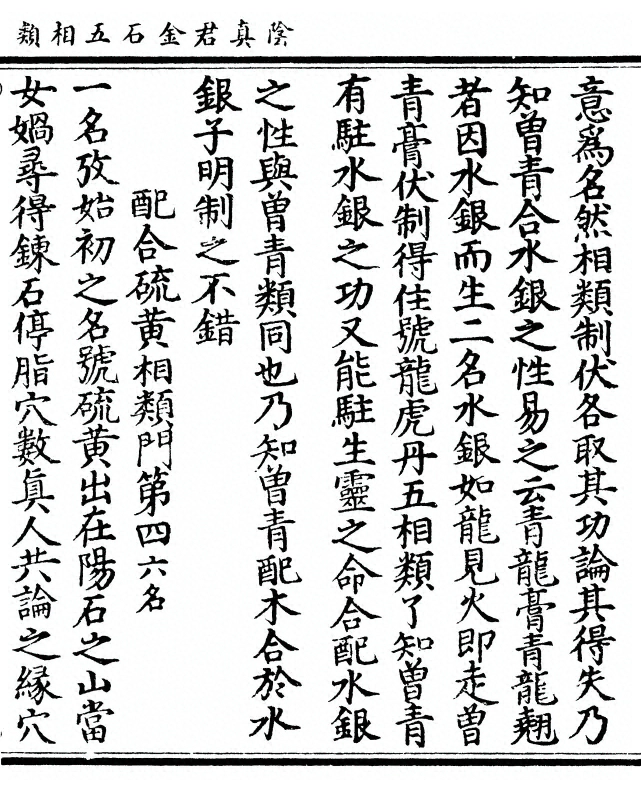 陰真君金石五相類
意爲名然相類制伏各取其功論其得失乃
知曾青合水銀之性易之云青龍膏青龍翹
者因水銀而生二名水銀如龍見火即走曾
青膏伏制得住號龍虎丹五相類了知曾青
有駐水銀之功又能駐生靈之命合配水銀
之性與曾青類同也乃知曾青配木合於水
銀子明制之不錯
配合硫黄相類門第四六名
一名孜始初之名號硫黄出在陽石之山當
女媧尋得鍊石停脂穴數眞人共論之縁穴